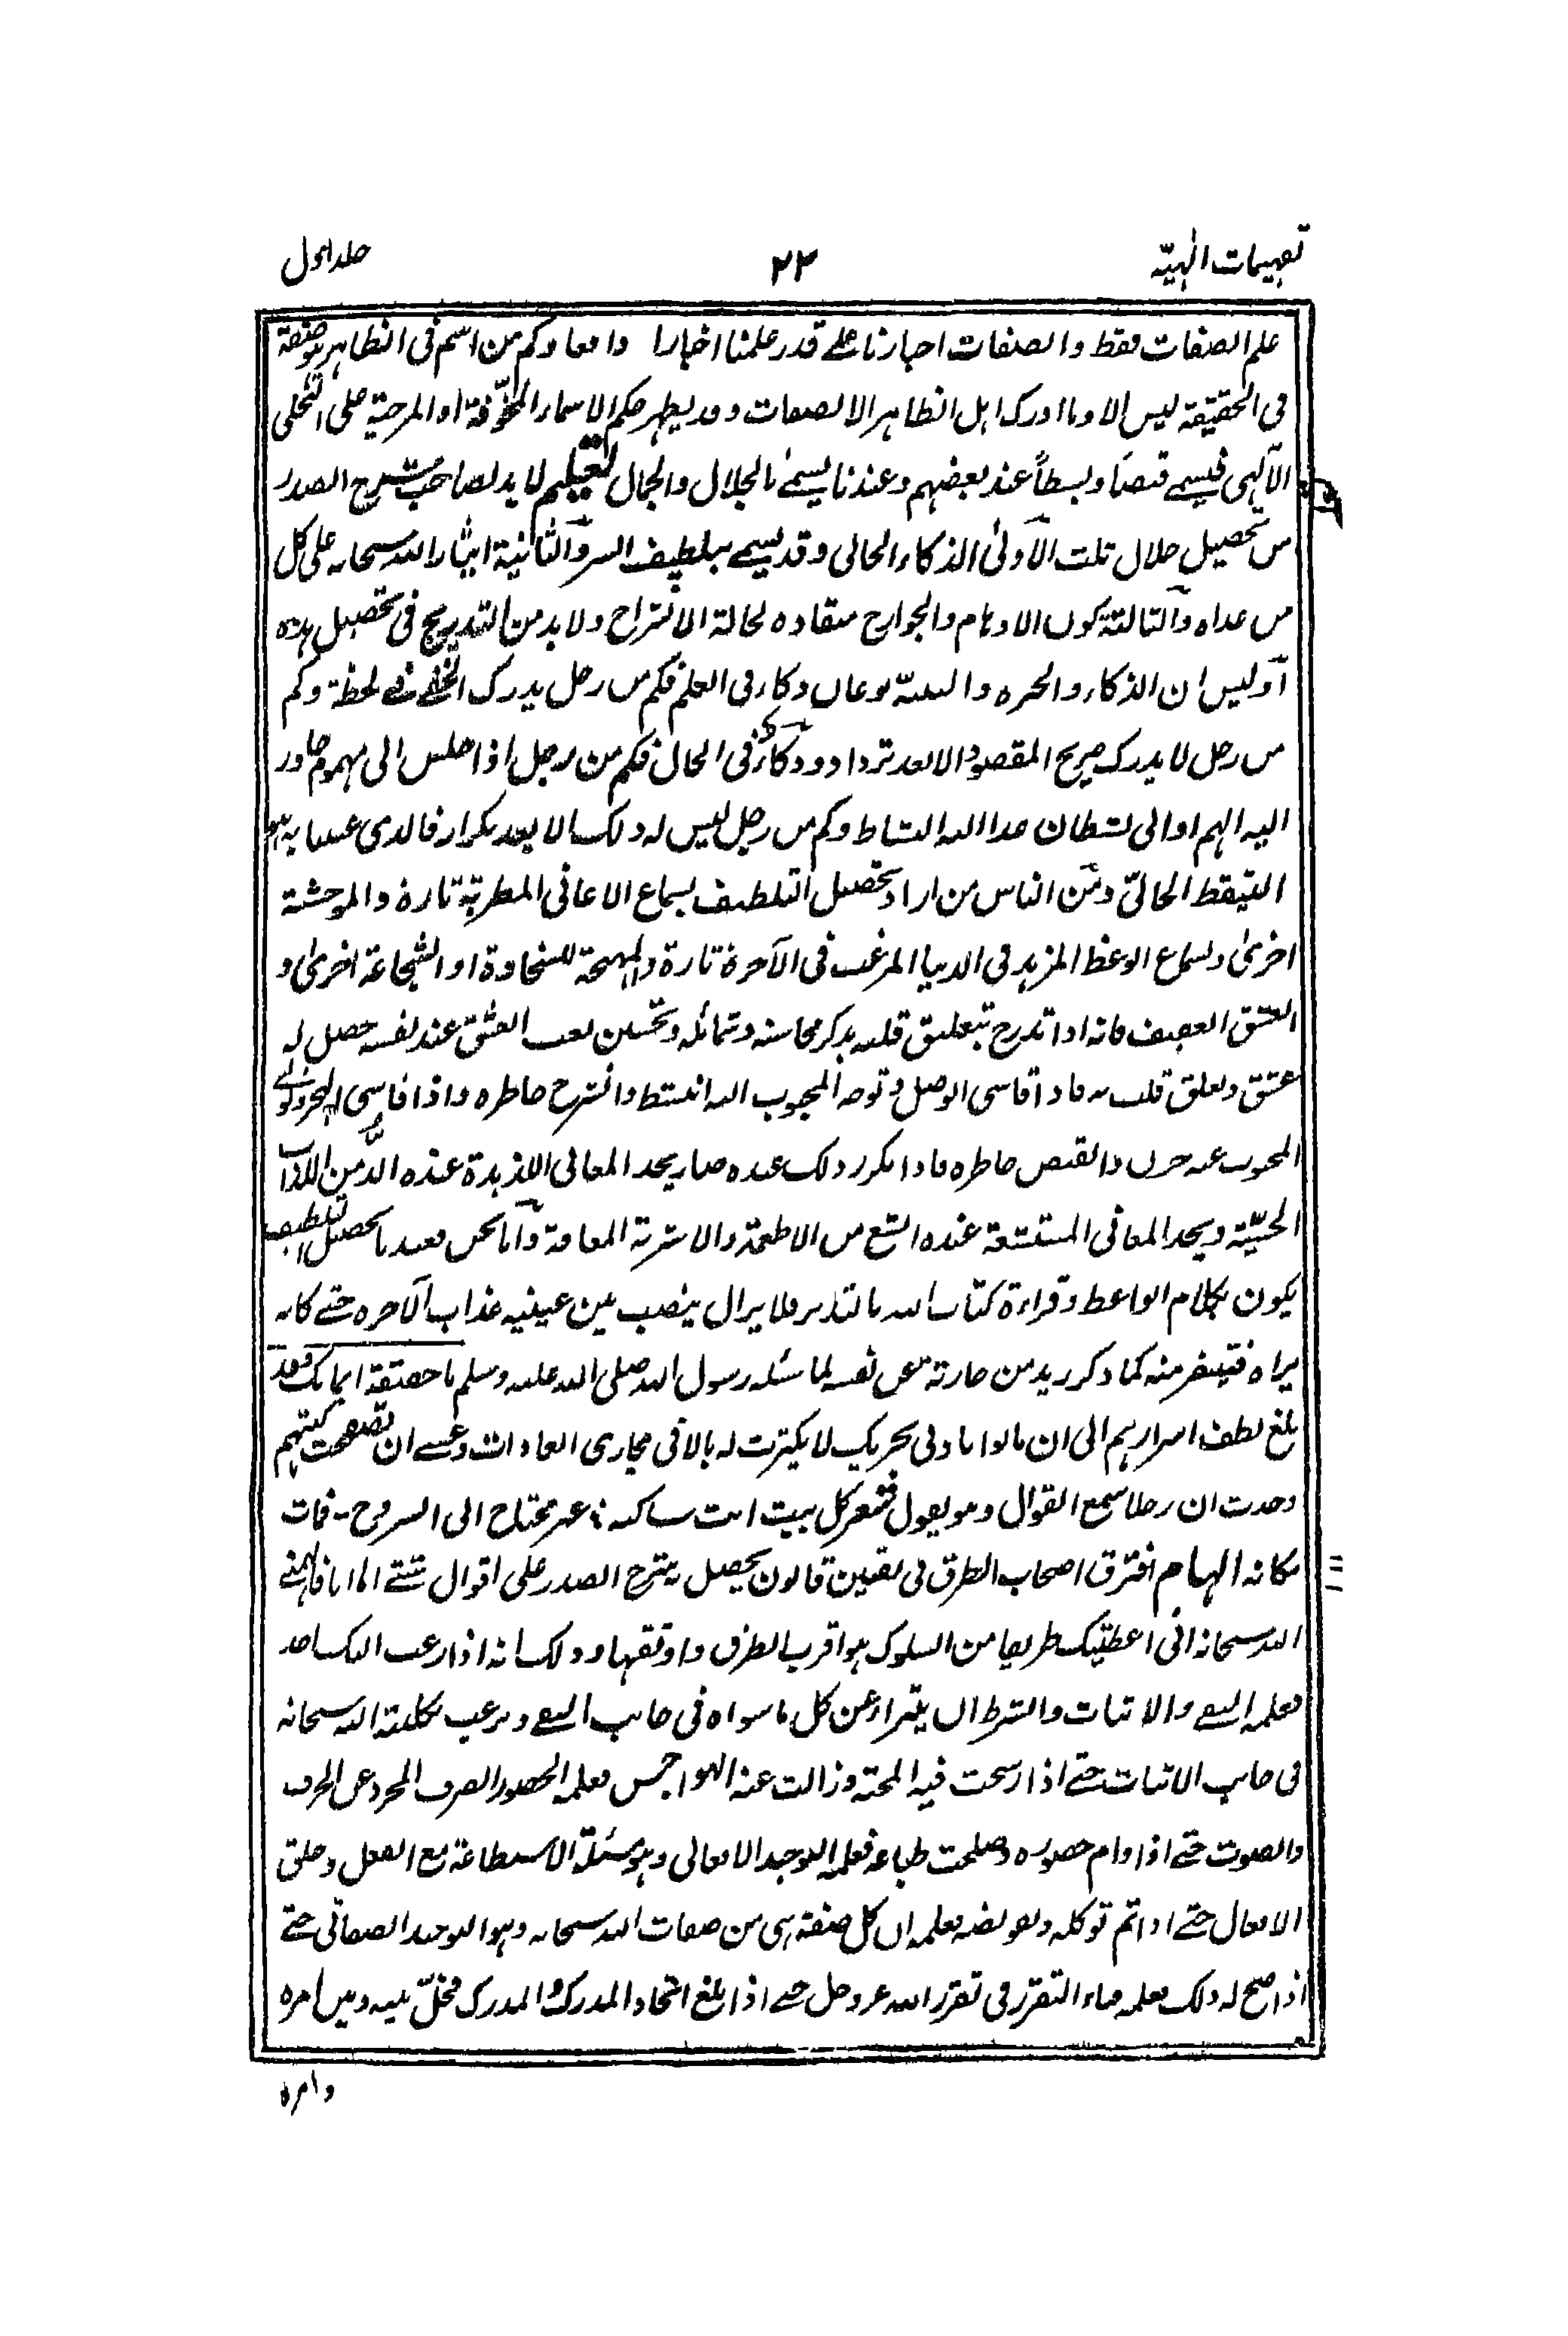 تفهیمات الٰہیّہ
۲۲
جلد اول
علم الصفات فقط والصفات اخبارنا علے قدر علمنا اخبارا وامعاد وكم من اسم فى الظاهر ہو صفة
فى الحقيقة ليس الا وما ادرک اہل الظاہر الا الصفات وقد يظہر حكم الاسماء المخوّفة او المرجية على التجلى
الآلہى فيسمے قبضًا وبسطاً عند بعضہم وعندنا يسمے بالجلال والجمال تفہيم لا بد لصاحب شرح الصدر
من تحصيل خلال ثلث الاولىٰ الذكاء الحالى وقد يسمے بلطيف السر والثانية ايثار اللہ سبحانہ على كل
من عداه والثالثة كون الاوہام والجوارح منقاده لحالة الانشراح ولا بد من التدريج فى تحصيل ہذه
أوليس ان الذكاء و نوعان ذكاء فى العلم فكم من رجل يدرک الخفے فے لحظة وكم
من رجل لا يدرک صريح المقصود الا بعد ترداد وذكاء فى الحال فكم من رجل اذا جلس الى مہموم جاور
اليہ الہم او الى نشطان النشاط وكم من رجل ليس لہ ذلک الا بعد تكرار فالذى عنينا بہ ہو
التيقظ الحالىّ ومن الناس من اراد تحصيل التلطيف بسماع الاغانى المطربة تارة والموحشة
اخرىٰ وبسماع الوعظ المزہد فى الدنيا المرغب فى الآخرة تارة والمہيجة للسخاوة او الشجاعة اخرىٰ و
العشق العفيف فانہ اذا تدرج بتعليق قلبہ بذكر محاسنہ وشمائلہ وتحسين لعب العشق عند نفسہ حصل لہ
عشق وتعلق قلب بہ فاذا قاسى الوصل وتوجہ المحبوب اليہ انبسط وانشرح خاطره واذا قاسى الہجر
المحبوب عنہ حزن وانقبض خاطره فاذا تكرر ذلک عنده صار يجد المعانى اللذيذة عنده الذّ من اللذات
الحسّيّة ويجد المعانى المستبشعة عنده ابشع من الاطعمة والاشربة المعافة وأما نحن فعندنا تحصيل التلطيف
يكون بكلام الواعظ وقراءة كتاب اللہ بالتدبر فلا يزال ينصب بين عينيہ عذاب الآخره حتے كانہ
يراه فيتنفر منہ كما ذكر زيد من حارثة عن نفسہ لما سئلہ رسول اللہ صلى اللہ عليہ وسلم ما حقيقة ايمانک وقد
بلغ لطف اسرارہم الى ان ماتوا بادنى تحريک لا يكترث لہ بالا فى مجارى العادات وعسے ان تصفحت كتبہم
وجدت ان رجلا سمع القوال وہو يقول شعر كل بيت انت ساكنہ ؛ غير محتاج الى السروج - فمات
مكانہ الہام افترق اصحاب الطرق فى تعيين قانون يحصل بہ شرح الصدر على اقوال شتے اما انا فالہمنے
اللہ سبحانہ انى اعطيتک طريقا من السلوک ہو اقرب الطرق واوثقہا وذلک انہ اذا رغب اليک احد
فعلمہ النفے والاثبات والشرط ان يتبرا عن كل ما سواه فى جانب النفے ويرغب بكليتہ اللہ سبحانہ
فى جانب الاثبات حتے اذا رسخت فيہ المحبة وزالت عنہ الہواجس فعلمہ الحضور الصرف المجرد عن الحرف
والصوت حتے اذا دام حضوره وصلحت طباعہ فعلمہ التوحيد الافعالى وہو مسئلة الاستطاعة مع الفعل وخلق
الافعال حتے اذا تم توكلہ وتفويضہ فعلمہ ان كل صفة ہى من صفات اللہ سبحانہ وہو التوحيد الصفاتى حتے
اذا صح لہ ذلک فعلمہ فناء التقرر فى تقرر اللہ عز وجل حتے اذا بلغ اتحاد المدرک والمدرک فخلّ بينہ وبين امره
وامره